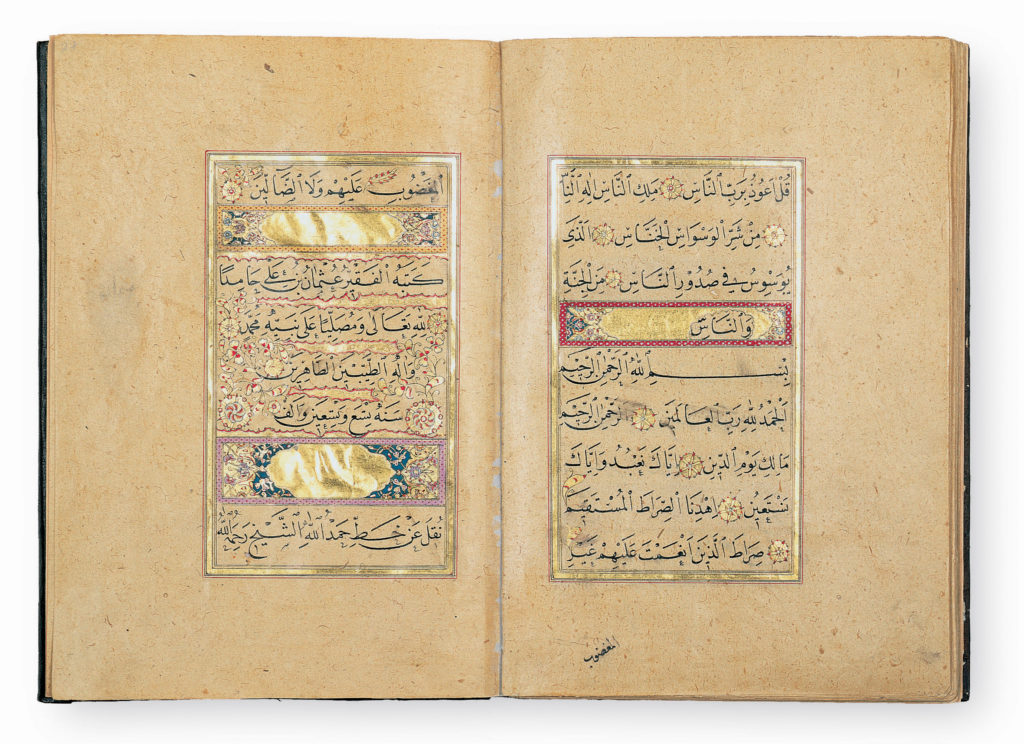 قُلْ اَعُوذُ بِرَبِّ النَّاسِ مَلِكِ النَّاسِ اِلٰهِ النَّاسِ
مِنْ شَرِّ الْوَسْوَاسِ الْخَنَّاسِ الَّذِى
يُوَسْوِسُ فِى صُدُورِ النَّاسِ مِنَ الْجِنَّةِ
وَالنَّاسِ
بِسْمِ اللهِ الرَّحْمٰنِ الرَّحِيمِ
اَلْحَمْدُ لِلّٰهِ رَبِّ الْعَالَمِينَ الرَّحْمٰنِ الرَّحِيمِ
مَالِكِ يَوْمِ الدِّينِ اِيَّاكَ نَعْبُدُ وَاِيَّاكَ
نَسْتَعِينُ اِهْدِنَا الصِّرَاطَ الْمُسْتَقِيمَ
صِرَاطَ الَّذِينَ اَنْعَمْتَ عَلَيْهِمْ غَيْرِ
المغضوب
الْمَغْضُوبِ عَلَيْهِمْ وَلَا الضَّالِّينَ
كَتَبَهُ الْفَقِيرُ عُثْمَانُ بْنُ عَلِى حَامِدًا
لِلّٰهِ تَعَالَى وَمُصَلِّيًا عَلَى نَبِيِّهِ مُحَمَّدٍ
وَآلِهِ الطَّيِّبِينَ الطَّاهِرِينَ
سَنَةَ تِسْعٍ وَتِسْعِينَ وَاَلْفٍ
نُقِلَ عَنْ خَطِّ حَمْدُ اللهِ الشَّيْخِ رَحِمَهُ اللهُ